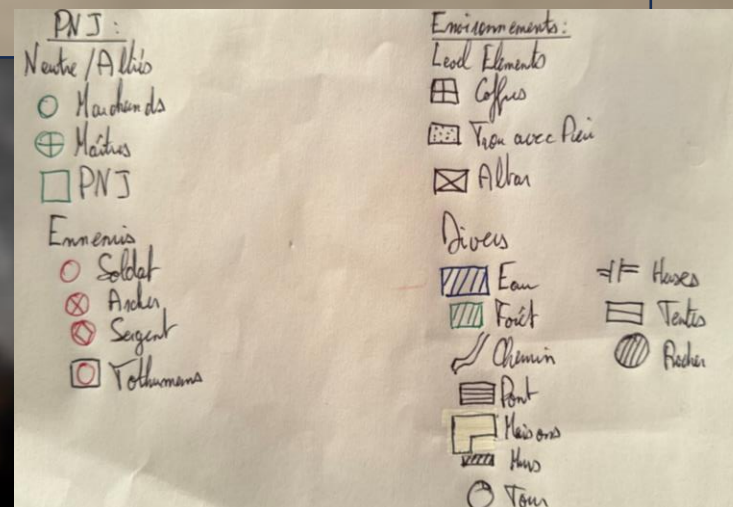 PNJ :
Neutre / Alliés
Marchands
Maîtres
PNJ
Ennemis
Soldat
Archer
Sergent
Tothumans
Environnements :
Level Elements
Coffres
Trou avec Pieu
Altar
Divers
Eau
Forêt
Chemin
Pont
Maisons
Murs
Tour
Tentes
Rocher